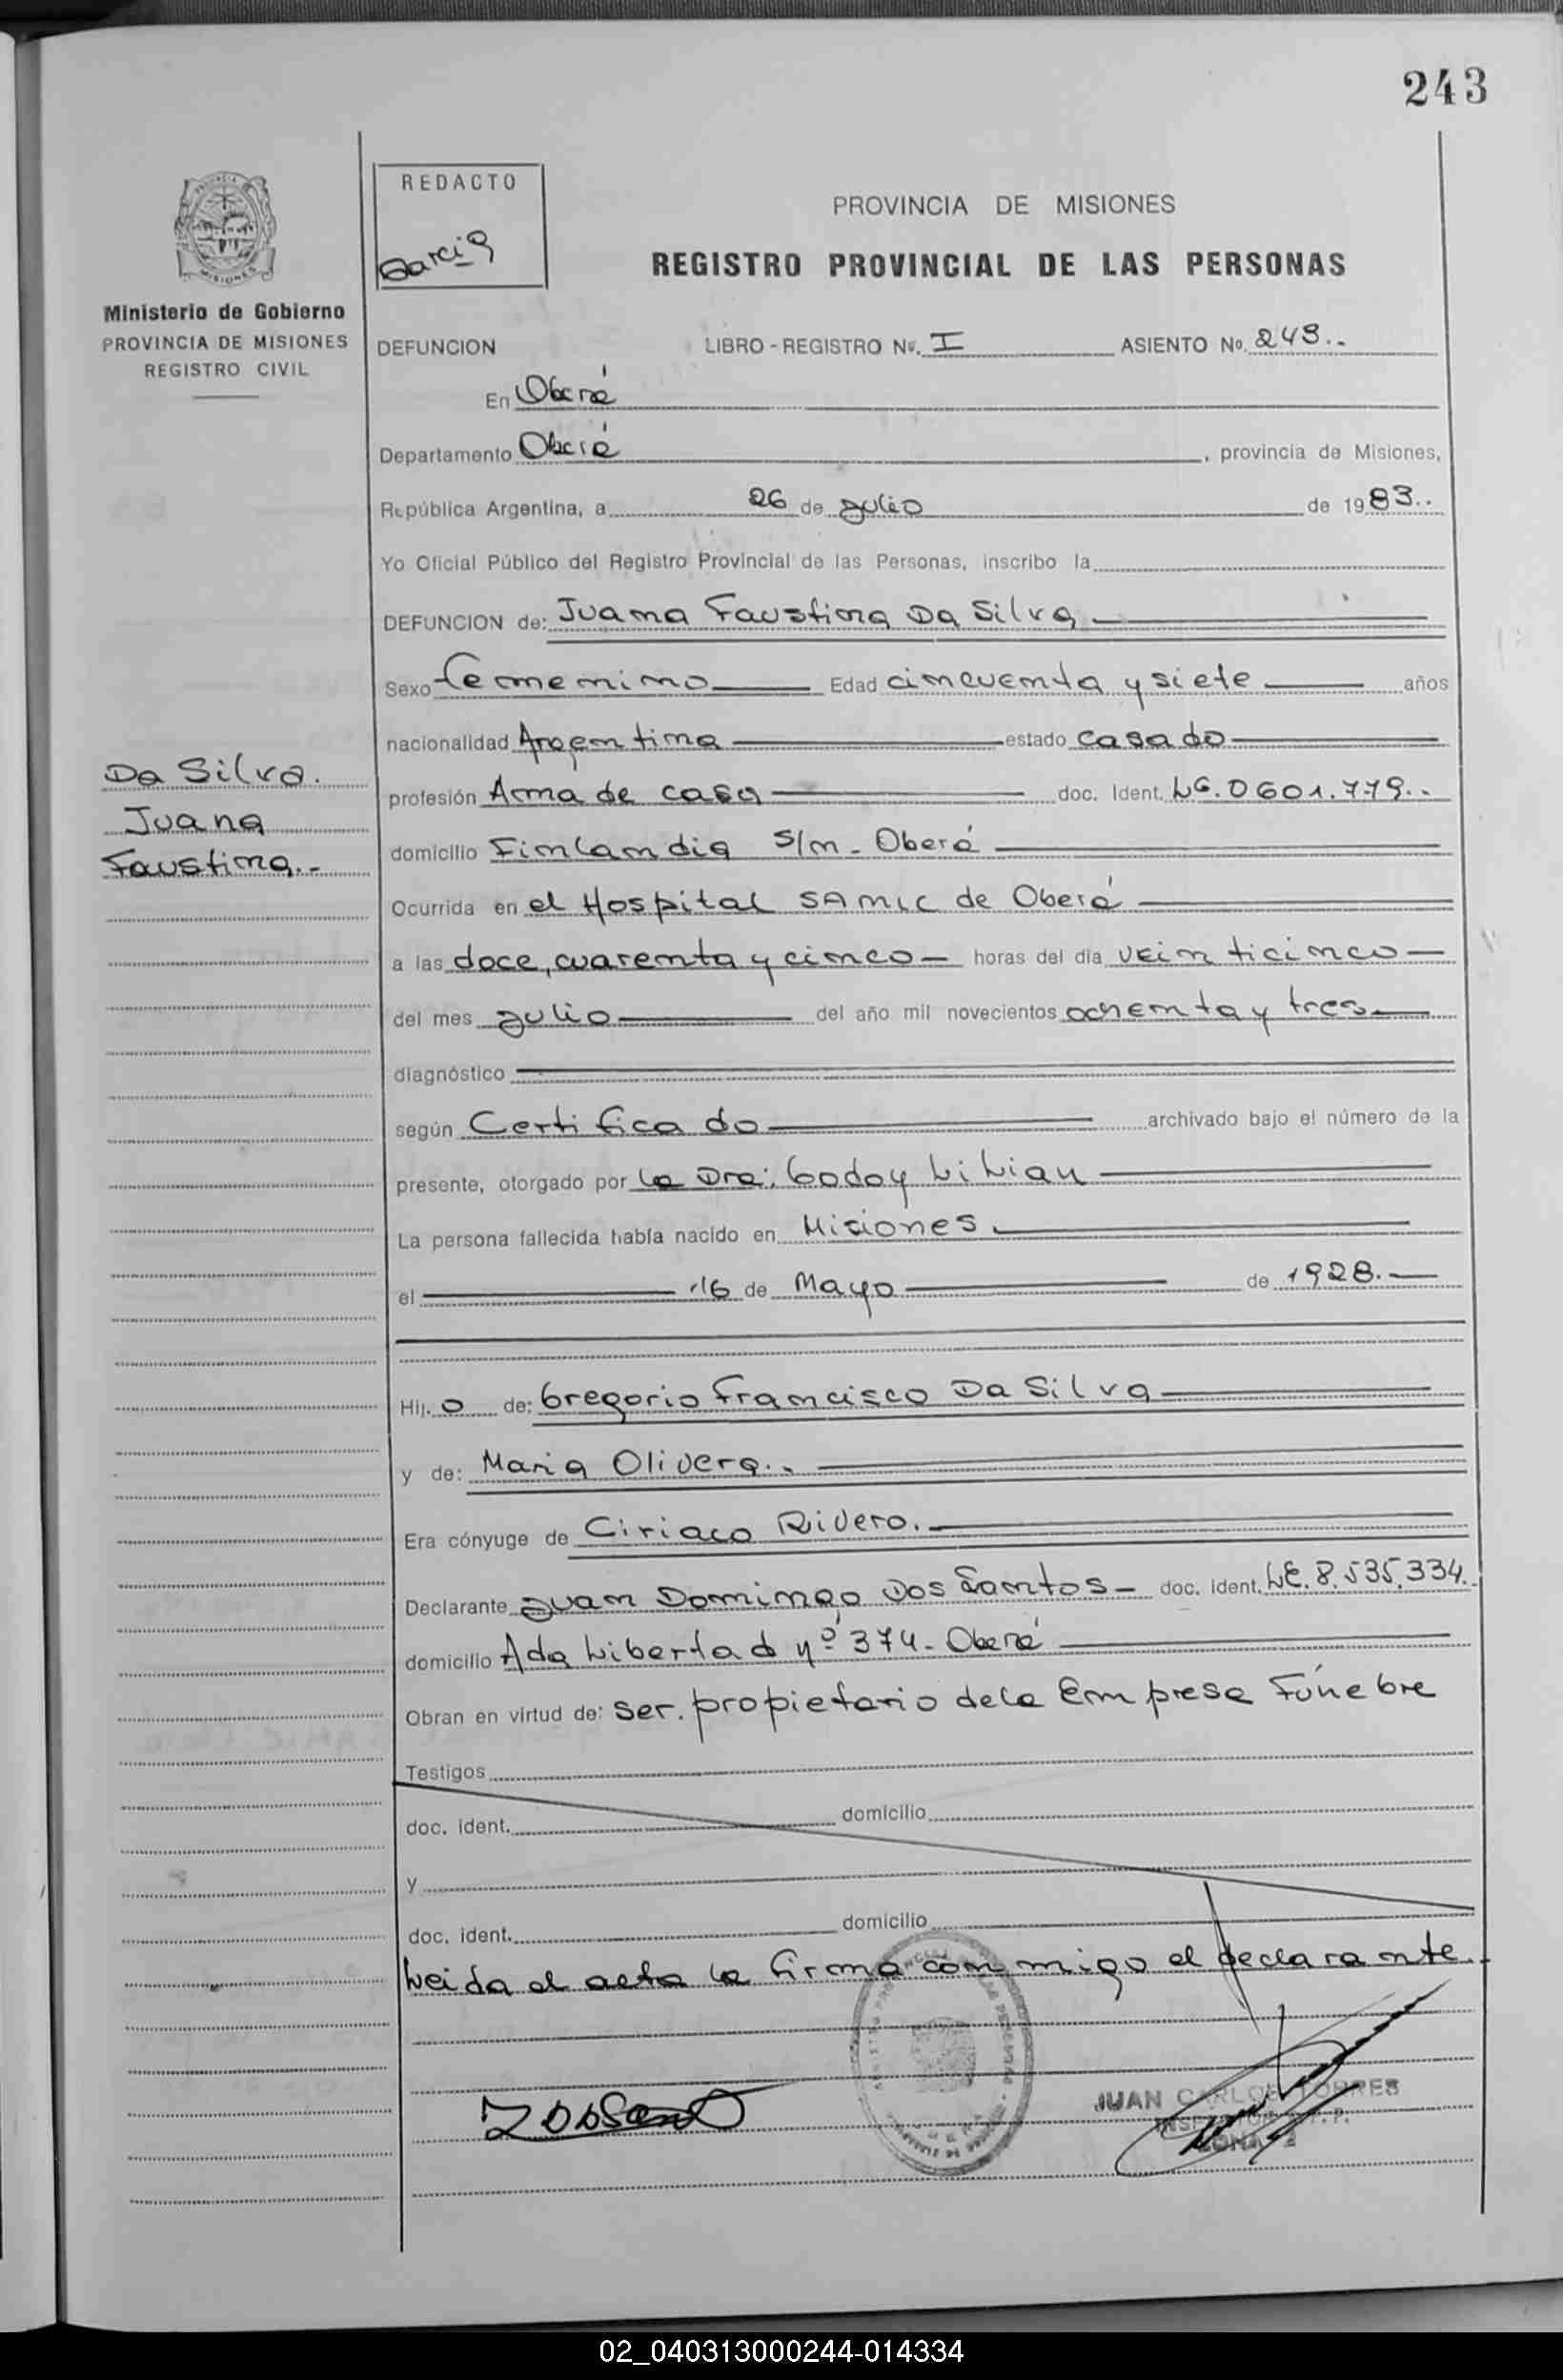 243
REDACTO
Garcia
PROVINCIA DE MISIONES
REGISTRO PROVINCIAL DE LAS PERSONAS
Ministerio de Gobierno
PROVINCIA DE MISIONES
REGISTRO CIVIL
DEFUNCION LIBRO - REGISTRO Nº. I ASIENTO Nº. 243..
En Oberá
Departamento Oberá, provincia de Misiones,
República Argentina, a 26 de Julio de 1983..
Yo Oficial Público del Registro Provincial de las Personas, inscribo la
DEFUNCION de: Juana Faustina Da Silva
Sexo femenino Edad cincuenta y siete años
nacionalidad Argentina estado casado
Da Silva.
Juana
Faustina.-
profesión Ama de casa doc. Ident. LC.0601.779..
domicilio Finlandia s/n - Oberá
Ocurrida en el Hospital SAMIC de Oberá
a las doce, cuarenta y cinco horas del día veinticinco
del mes Julio del año mil novecientos ochenta y tres
diagnóstico
según Certificado archivado bajo el número de la
presente, otorgado por la Dra: Godoy Lilian
La persona fallecida había nacido en Misiones
el 16 de Mayo de 1928.-
Hij. o de: Gregorio Francisco Da Silva
y de: Maria Olivera..
Era cónyuge de Ciriaco Rivero.
Declarante Juan Domingo Dos Santos - doc. ident. LE.8.535.334.
domicilio Ada Libertad nº 374 - Oberá
Obran en virtud de: ser. propietario de la Empresa Fúnebre
Testigos
doc. ident. domicilio
y
doc. ident. domicilio
Leida el acta la firma conmigo el declarante.
JUAN CARLOS TORRES
ZONA 2
02_040313000244-014334